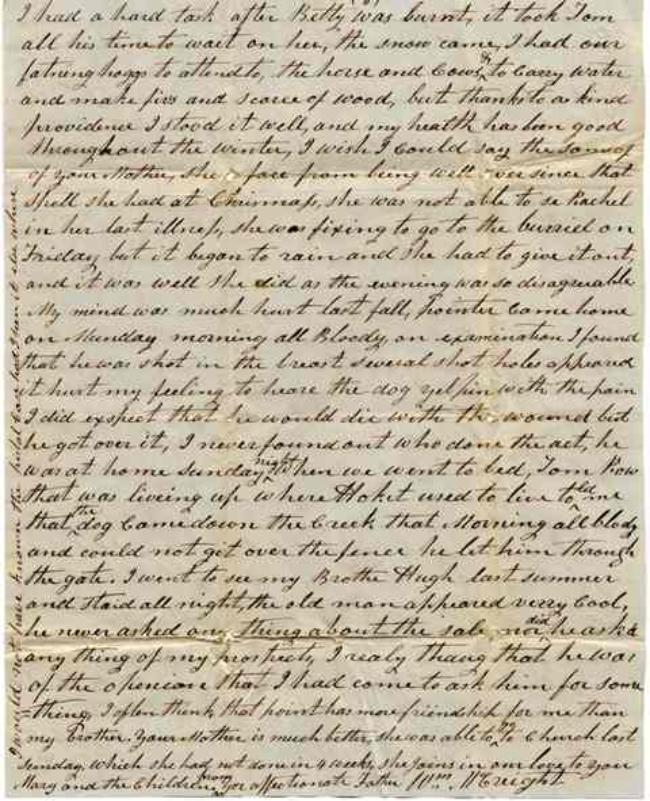 I had a hard task after Betty was burnt, it took Tom
all his time to wait on her, the snow came, I had our
fatning hoggs to attend to, the horse and Cows, & to Carry water
and make firs and scarce of wood, but thanks to a kind
providence I stood it well, and my health has been good
throughout the winter, I wish I could say the same of
of your Mother, she is fare from being well ever since that
spell she had at Chrismas, she was not able to se Rachel
in her last illness, she was fixing to go to the burried on
Friday but it began to rain and she had to give it out,
and it was well she did as the evening was so disagreable
My mind was much hurt last fall, Pointer Came home
on Munday morning all Bloody, on examination I found
that he was shot in the breast several shot holes appeared
it hurt my feeling to heare the dog yelpin with the pain
I did exspect that he would die with the wound but
he got over it, I never found out who done the act, he
was at home sunday night when we went to bed, Tom Row
that was liveing up where Hoket used to live told me
that the dog Came down the Creek that Morning all blody
and could not git over the fence he let him through
the gate. I went to see my Brothe Hugh last summer
and staid all night, the old man appeared verry Cool,
he never asked any thing about the sale, nor did he askd
any thing of my prospects, I realy thaug that he was
of the openion that I had come to ask him for some
thing, I often think that point has more friendship for me than
my Brother. Your Mother is much better she was able to go to Church last
sunday, which she had not done in 4 weeks, she joins in our love to you
Mary and the Children from your affectionate Father Wm McCreight
I would not have known the had I seen it else where